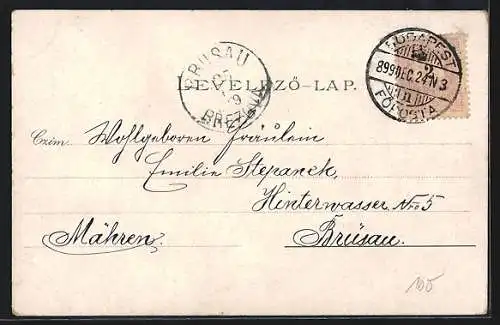 BUDAPEST
899 DEC. 24 N 3
FŐPOSTA
BRÜSAU
BŘEZOVA
LEVELEZŐ-LAP.
Czim: Wohlgeboren Fräulein
Emilie Stepanek,
Hinterwasser Nro 5
Mähren. Brüsau.
105